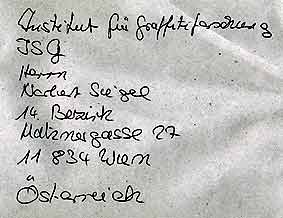 Institut für Graffitiforschung
ISG
Herrn
Norbert Siegel
14. Bezirk
Matznergasse 27
11 834 Wien
Österreich